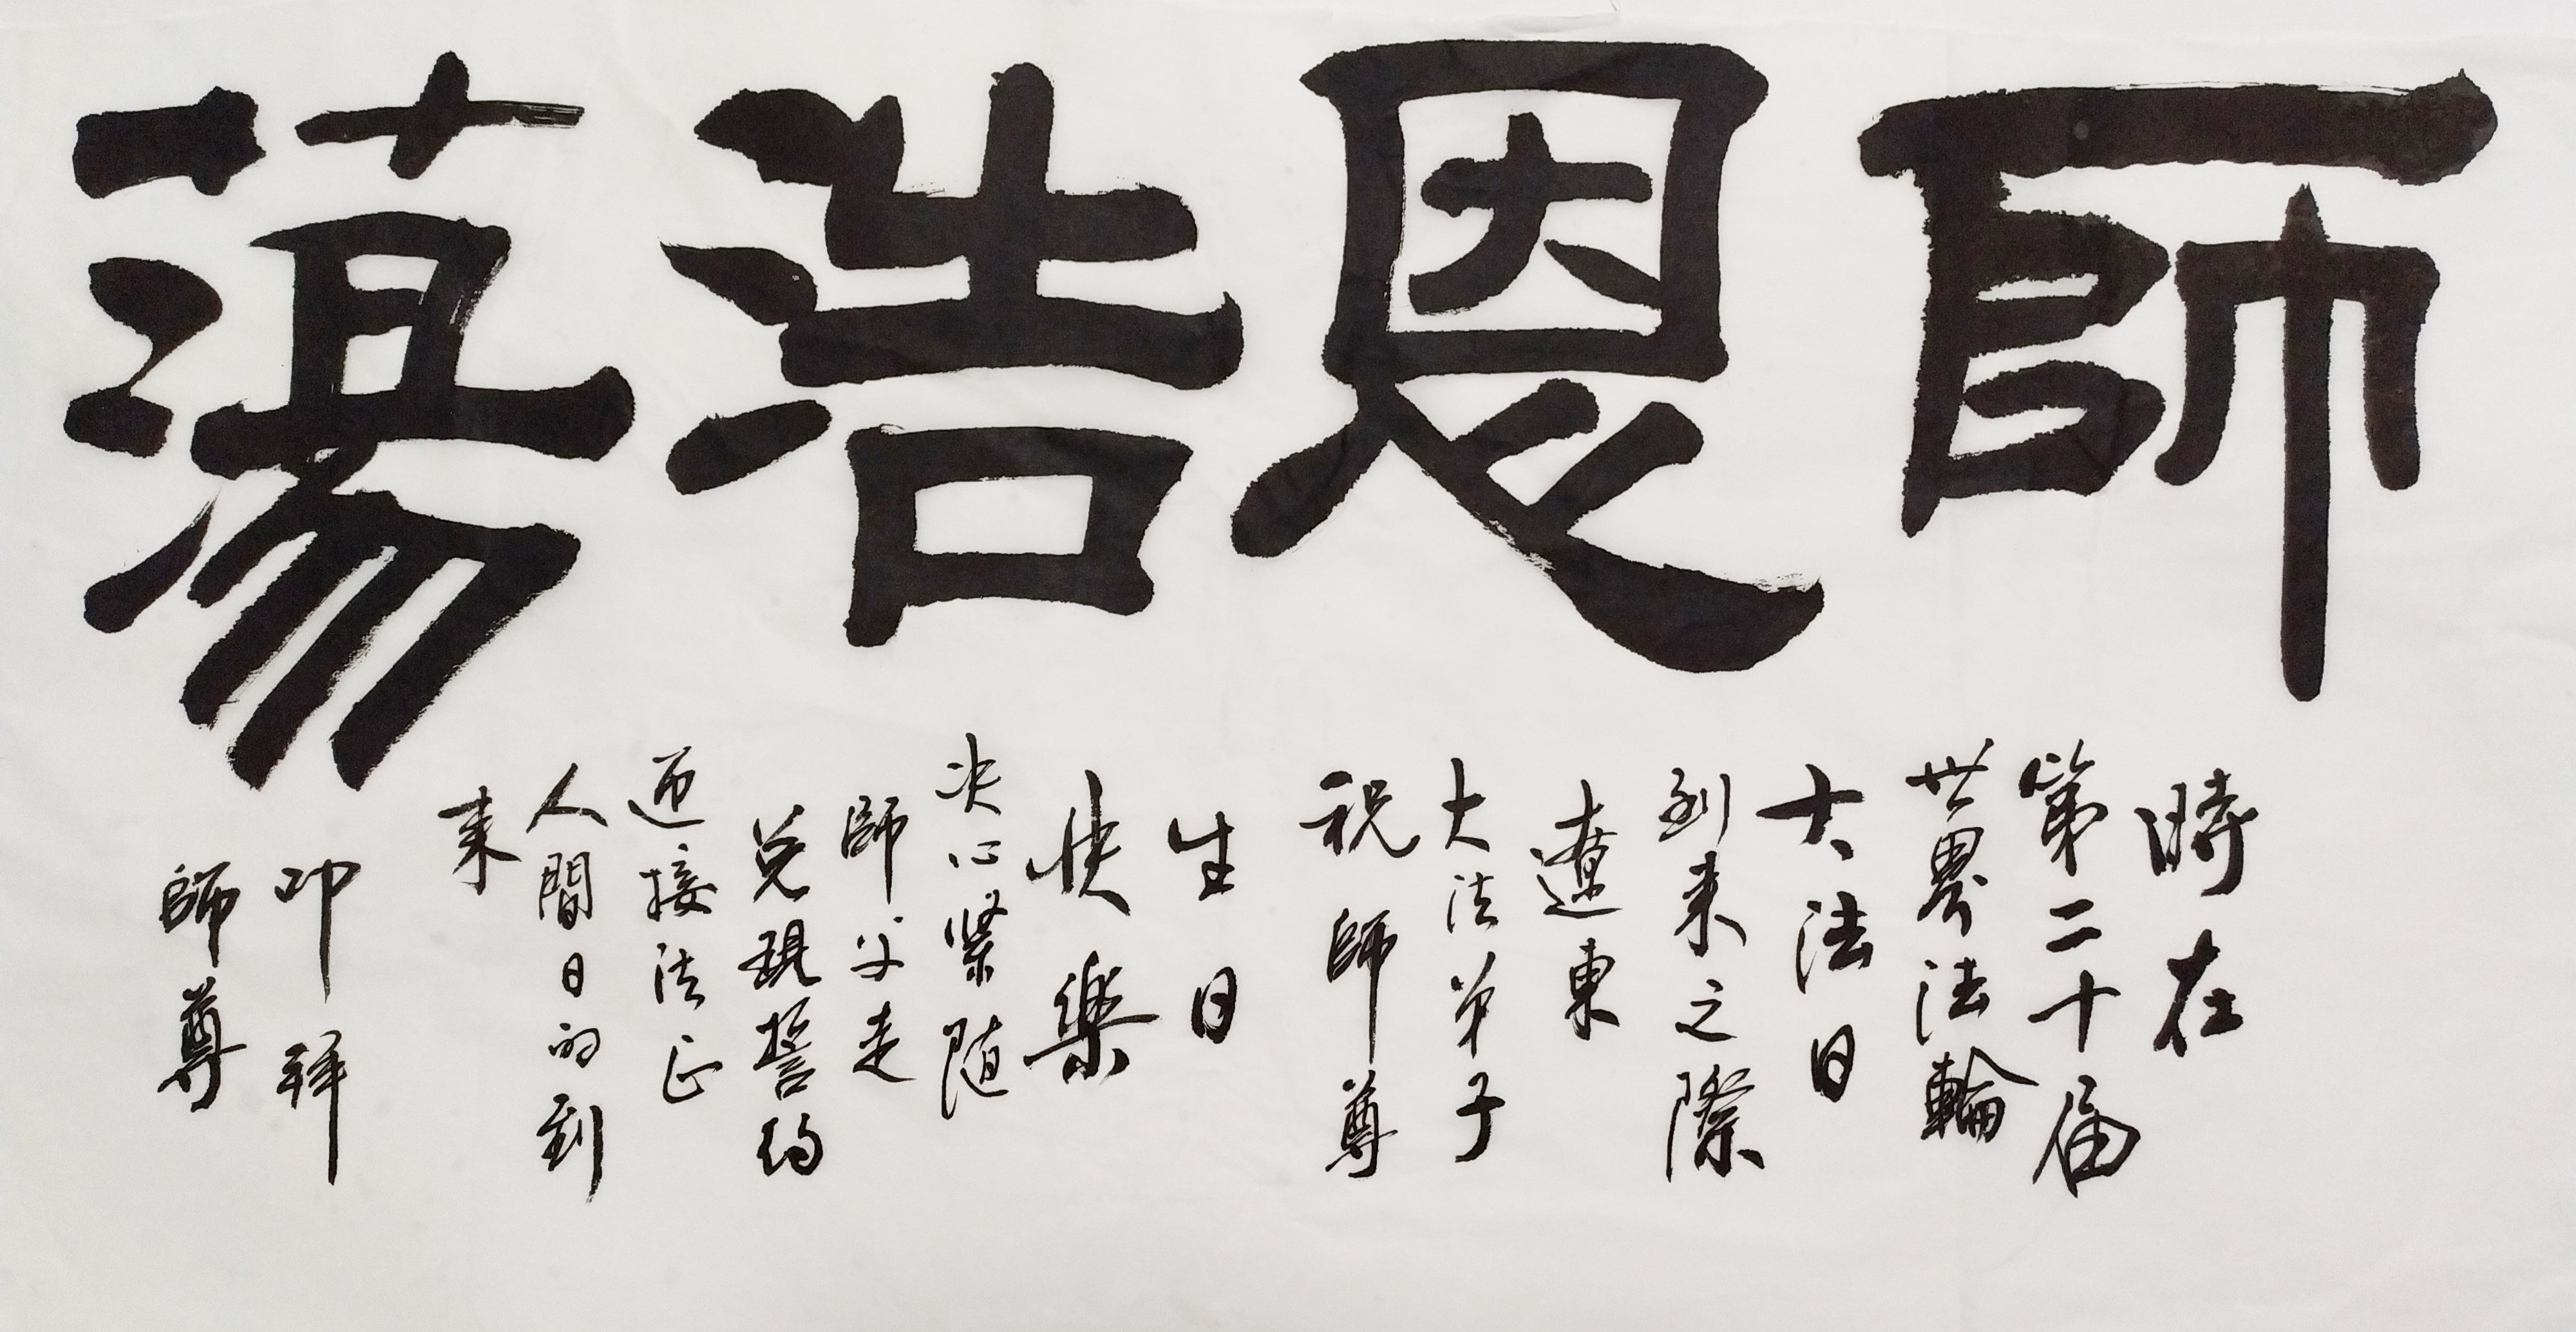 師恩浩蕩
時在
第二十届
世界法輪
大法日
到来之際
遼東
大法弟子
祝師尊
生日
快樂
决心緊随
師父走
兑現誓約
迎接法正
人間日的到
来
叩拜
師尊